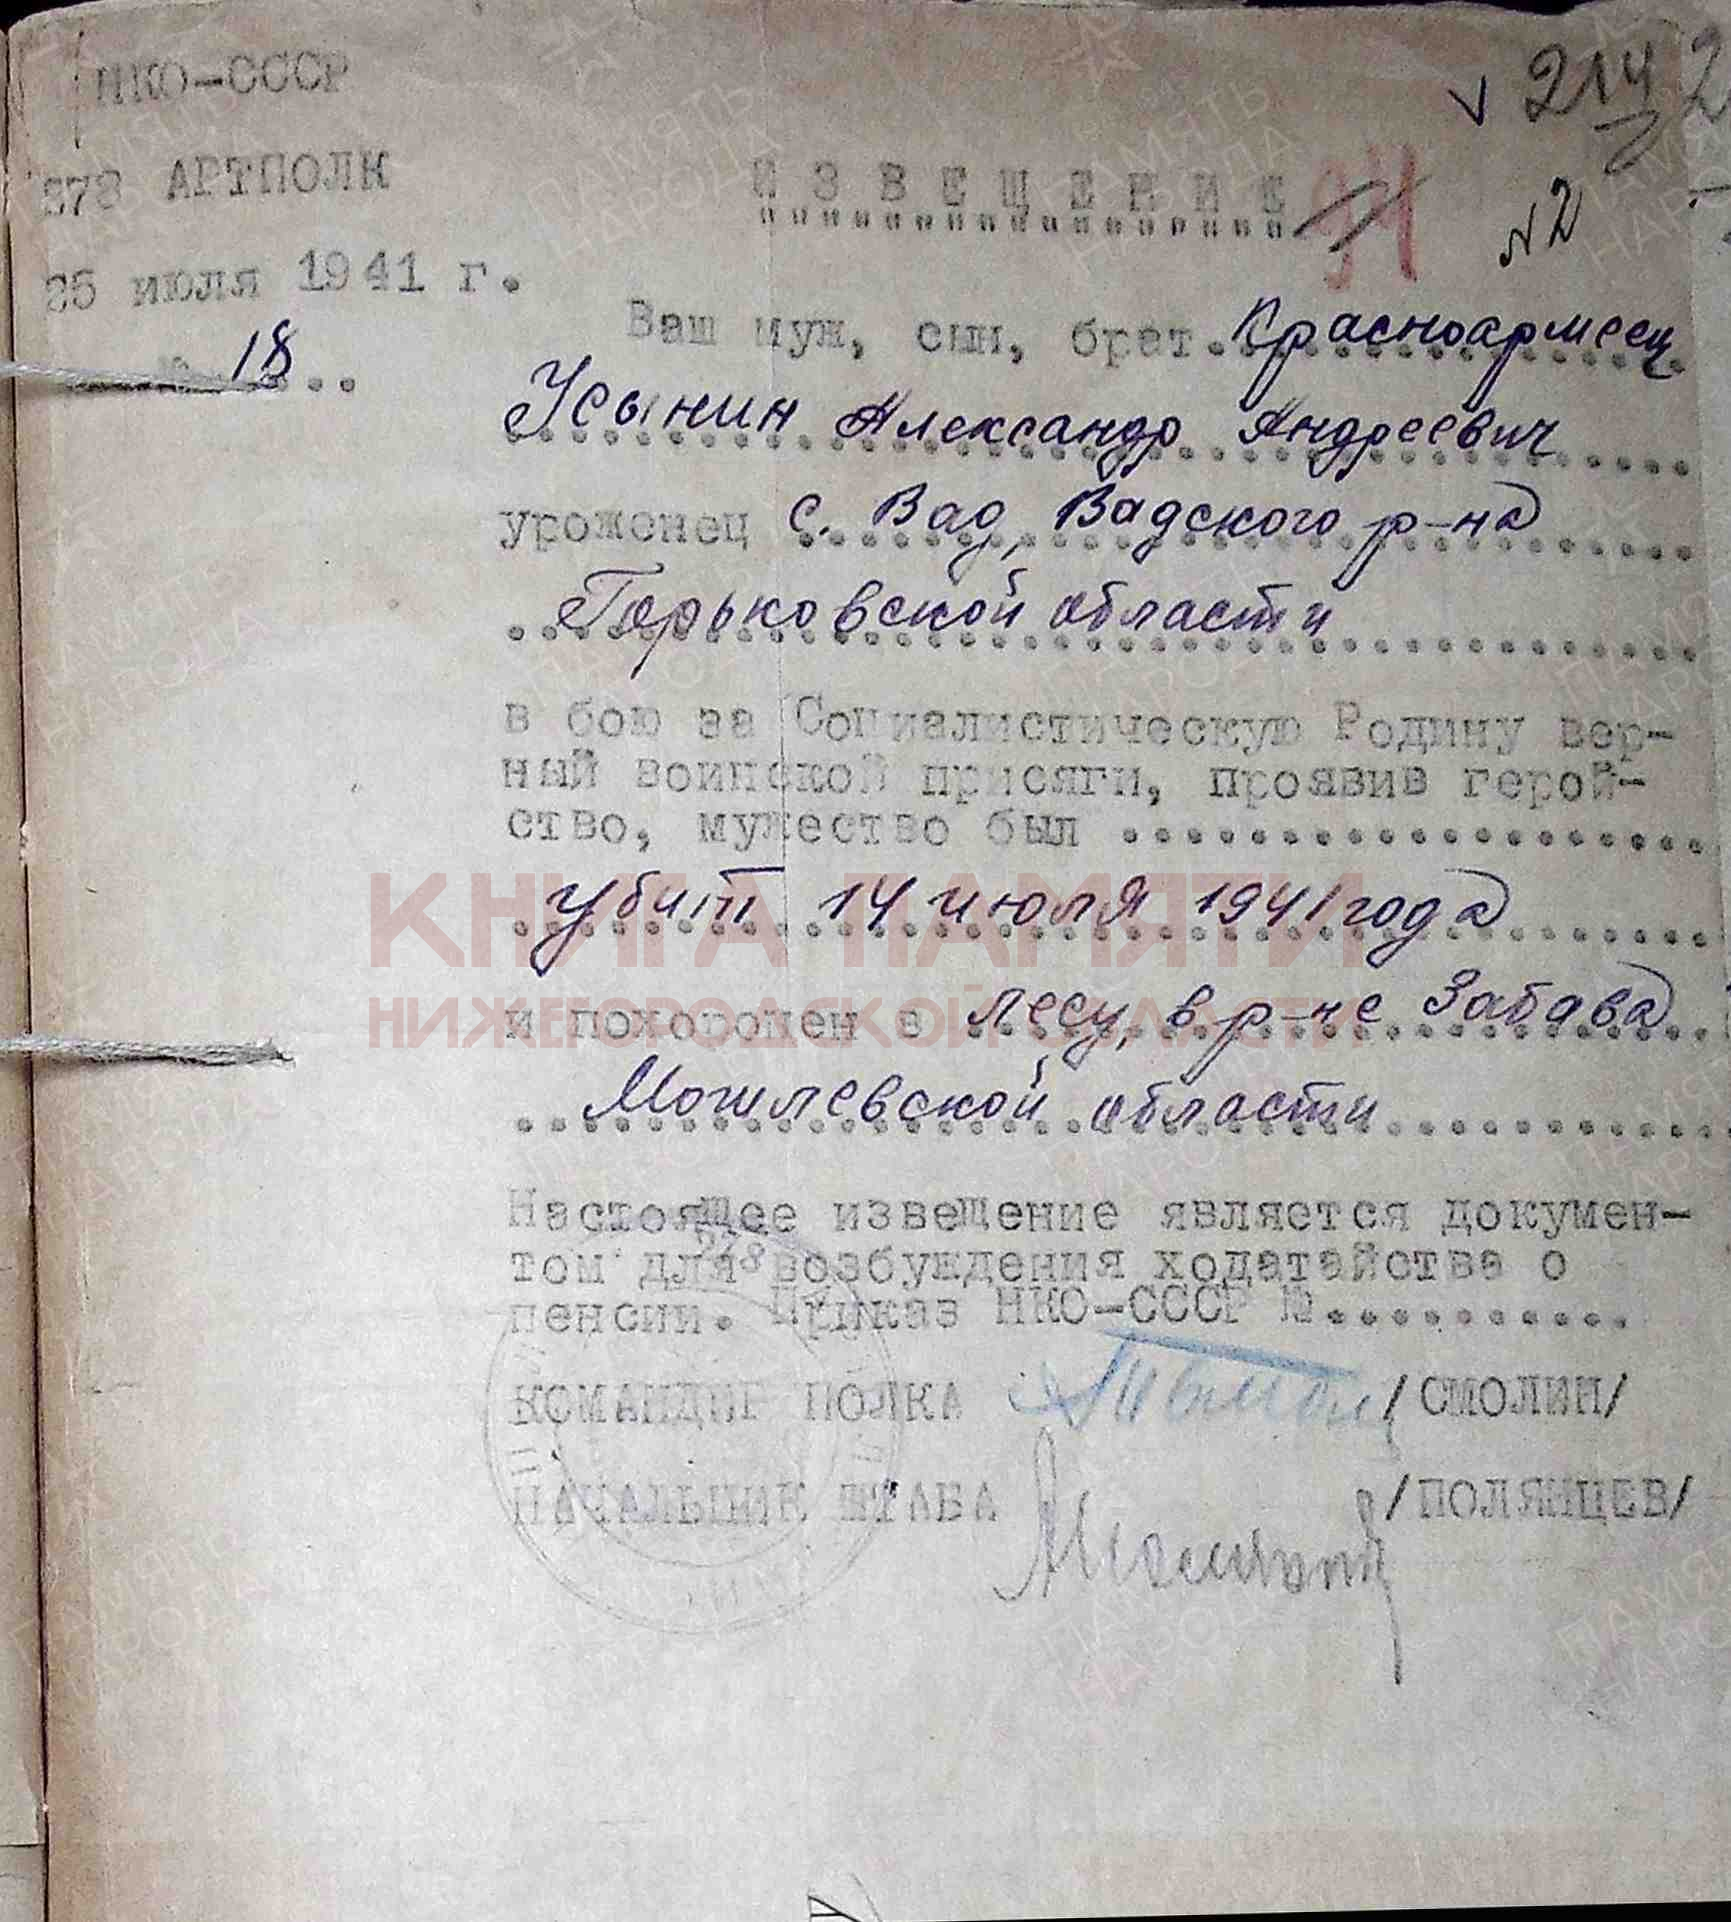 НКО-СССР
✓ 214 2
АРТПОЛК
ИЗВЕЩЕНИЕ
№2
25 июля 1941 г.
№ 18
Ваш муж, сын, брат Красноармеец
Усынин Александр Андреевич
уроженец с. Вад, Вадского р-на
Горьковской области
в бою за Социалистическую Родину вер-
ный воинской присяги, проявив герой-
ство, мужество был
убит 14 июля 1941 года
КНИГА ПАМЯТИ
НИЖЕГОРОДСКОЙ ОБЛАСТИ
и похоронен в лесу, в р-не Забава
Могилевской области
Настоящее извещение является докумен-
том для возбуждения ходатайства о
пенсии. Приказ НКО-СССР №
КОМАНДИР ПОЛКА /СМОЛИН/
НАЧАЛЬНИК ШТАБА /ПОЛЯНЦЕВ/
ПАМЯТЬ НАРОДА